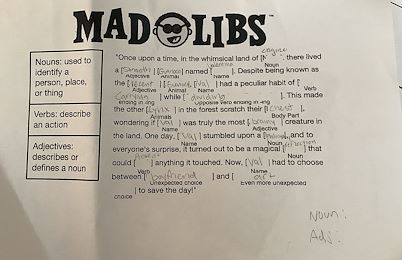 MAD LIBS™
Nouns: used to
identify a
person, place,
or thing
Verbs: describe
an action
Adjectives:
describes or
defines a noun
engine
"Once upon a time, in the whimsical land of [N ], there lived
Noun
a [Smooth] [ ] named [ ]. Despite being known as
Adjective Animal Name
the [ ] [ ], [Val] had a peculiar habit of [
Adjective Animal Name Verb
Carrying ] while [ dividing ]. This made
ending in -ing Opposite verb ending in -ing
the other [ ] in the forest scratch their [ chest ],
Animals Body Part
wondering if [Val] was truly the most [ brainy ] creature in
Name Adjective
the land. One day, [Val] stumbled upon a [ ], and to
Name Noun
everyone's surprise, it turned out to be a magical [ ] that
reflection
Noun
could [ ] anything it touched. Now, [Val] had to choose
Verb Name
between [ boyfriend ] and [ art
Unexpected choice Even more unexpected
] to save the day!"
choice
Noun:
Adj: